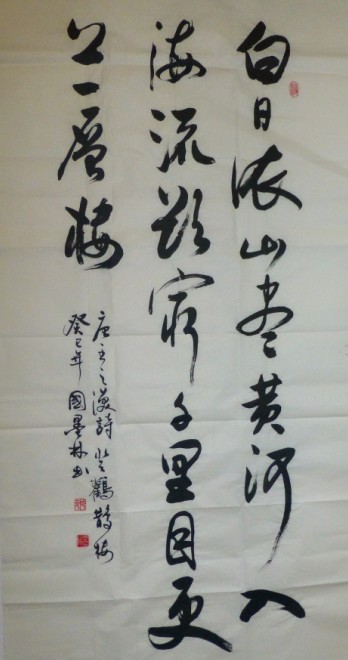 白日依山尽黄河入
海流欲窮千里目更
上一層樓
唐王之渙詩登鸛鵲樓
癸巳年國墨林书